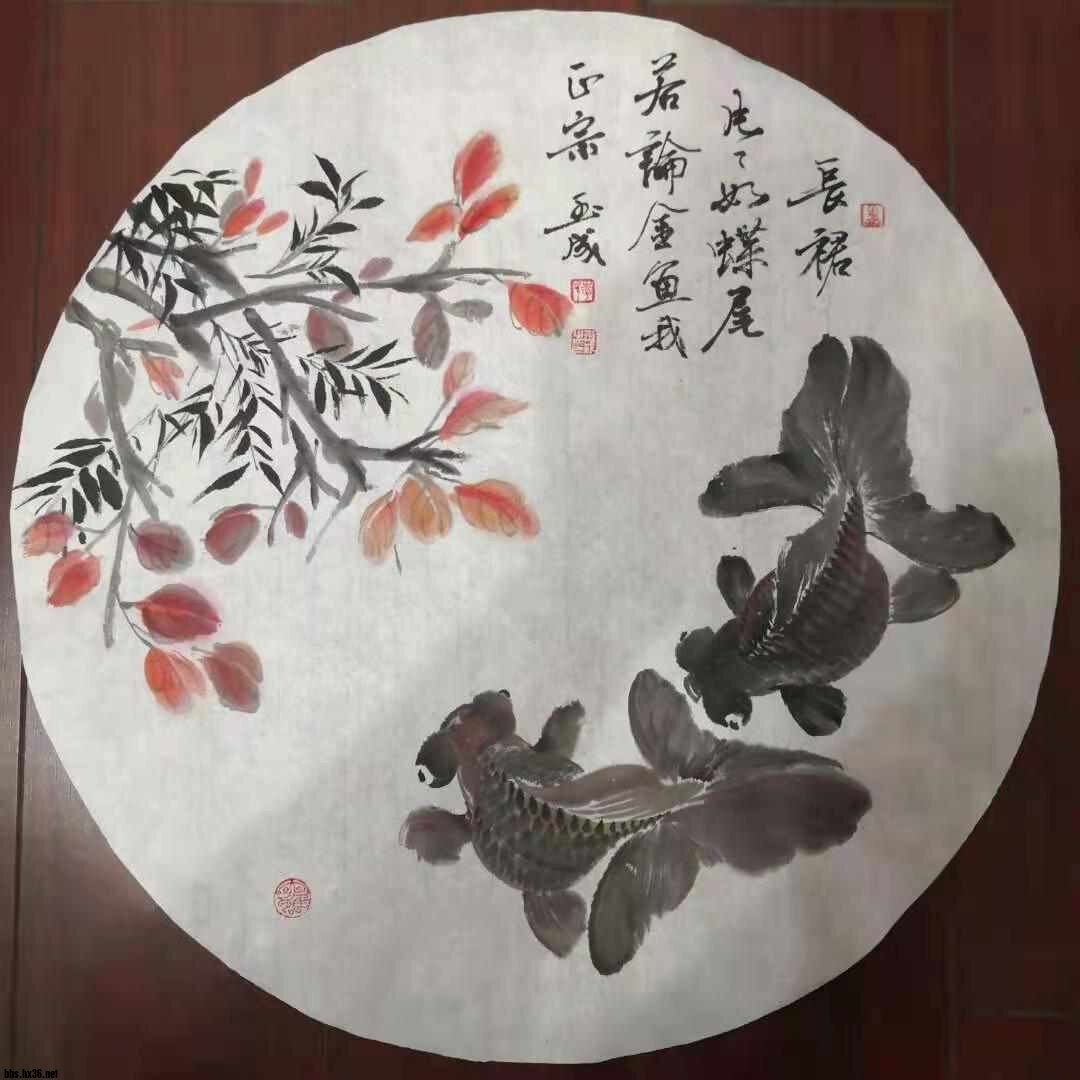 長裙
片々如蝶尾
若論金魚我
正宗 玉成
bbs.hx36.net